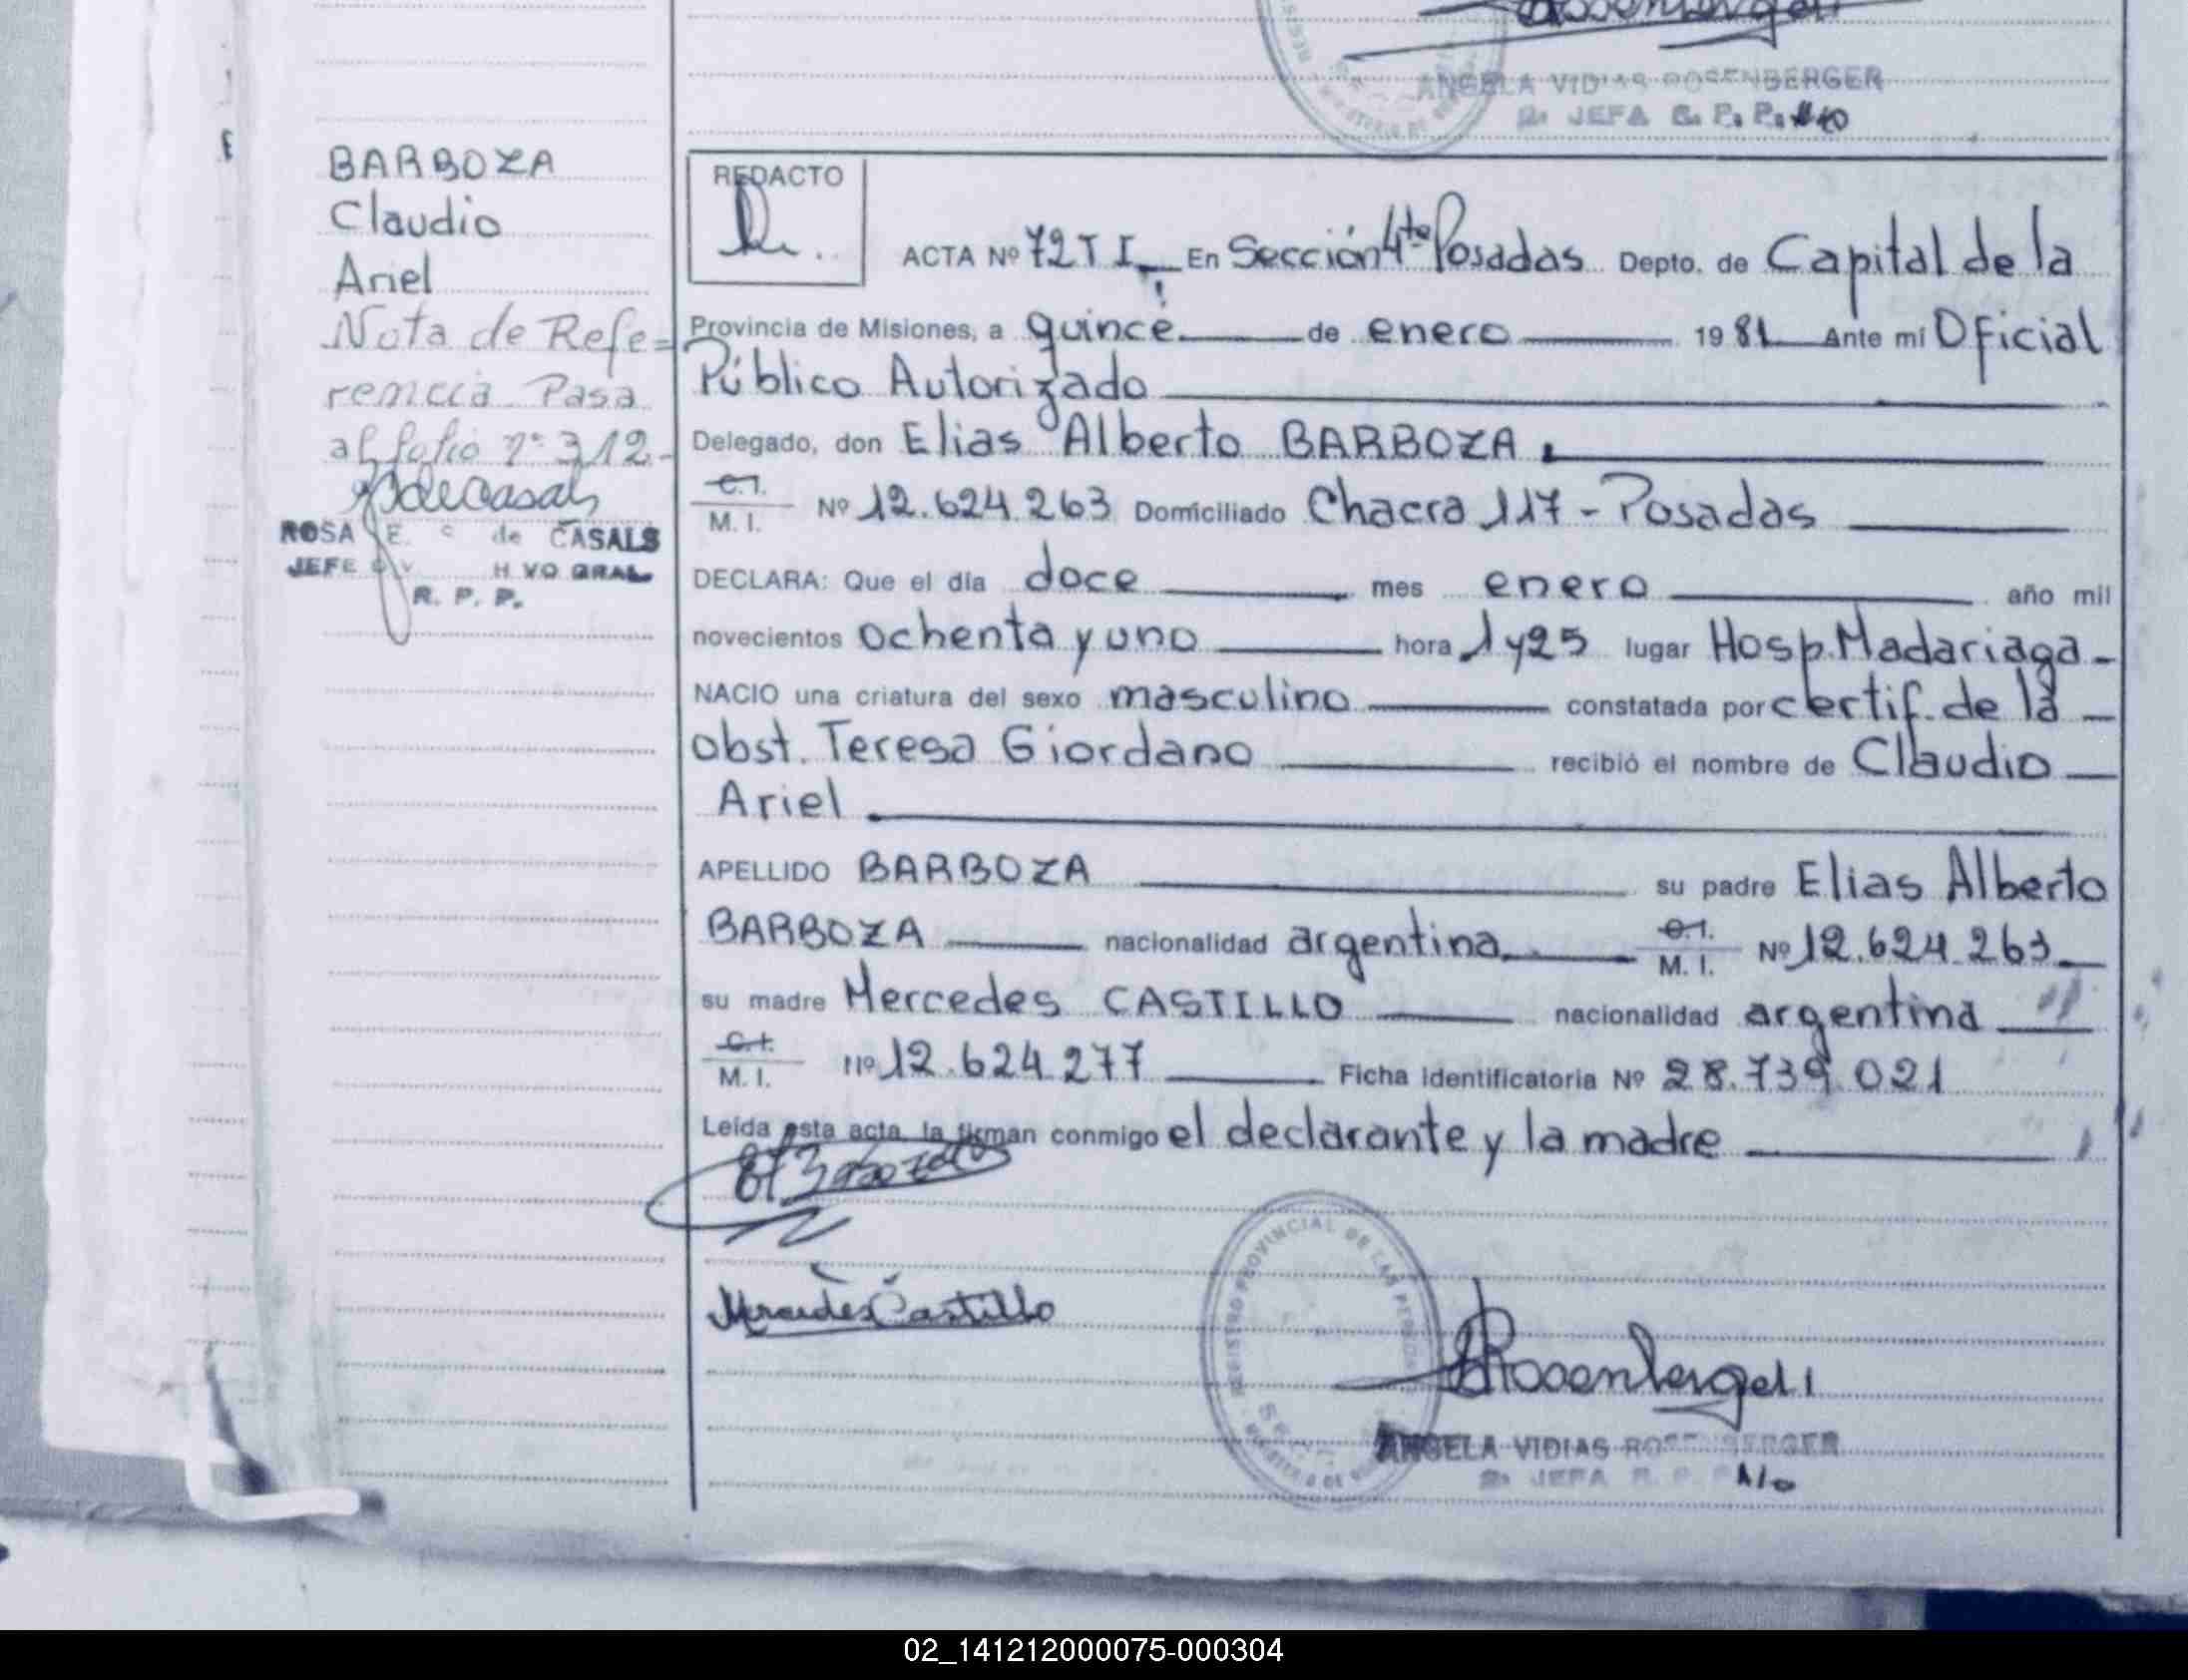 Rosenberger
ANGELA VIDIAS ROSENBERGER
2ª JEFA R. P. P. A/c
BARBOZA
Claudio
Ariel
Nota de Refe=
rencia Pasa
al folio nº 312.-
ROSA E. C de CASALS
JEFE DIV. H VO GRAL
R. P. P.
REDACTO
ACTA Nº 72 T I En Sección 4ta Posadas Depto. de Capital de la
Provincia de Misiones, a quince de enero 1981 Ante mi Oficial
Público Autorizado
Delegado, don Elias Alberto BARBOZA.
C.I.
M. I. Nº 12.624.263 Domiciliado Chacra 117 - Posadas
DECLARA: Que el día doce mes enero año mil
novecientos ochenta y uno hora 1 y 25 lugar Hosp. Madariaga -
NACIO una criatura del sexo masculino constatada por certif. de la -
obst. Teresa Giordano recibió el nombre de Claudio
Ariel
APELLIDO BARBOZA su padre Elias Alberto
BARBOZA nacionalidad argentina C.I.
M. I. Nº 12.624.263
su madre Mercedes CASTILLO nacionalidad argentina
C.I.
M. I. Nº 12.624.277 Ficha Identificatoria Nº 28.739.021
Leída esta acta, la firman conmigo el declarante y la madre
Mercedes Castillo
REGISTRO PROVINCIAL DE LAS PERSONAS
Rosenberger
ANGELA VIDIAS ROSENBERGER
2ª JEFA R. P. P. A/c
02_141212000075-000304